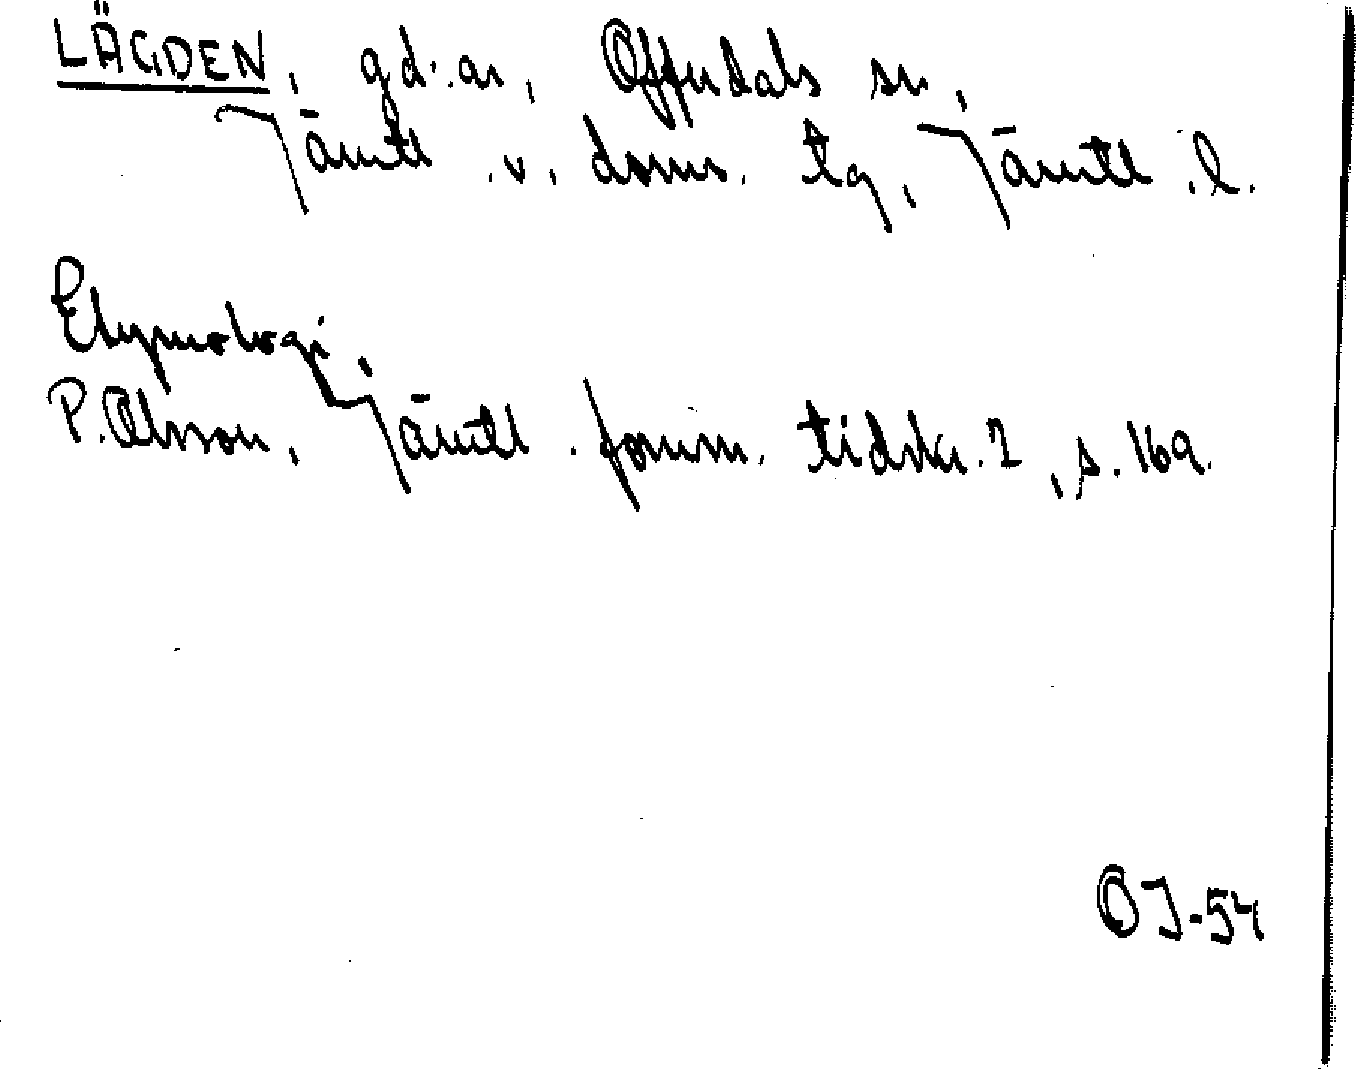 LÄGDEN, gd:ar, Offerdals sn,
Jämtl. v. doms. tg, Jämtl. l.
Etymologi.
P. Olsson, Jämtl. fornm. tidskr. 2, s. 169.
OJ-54